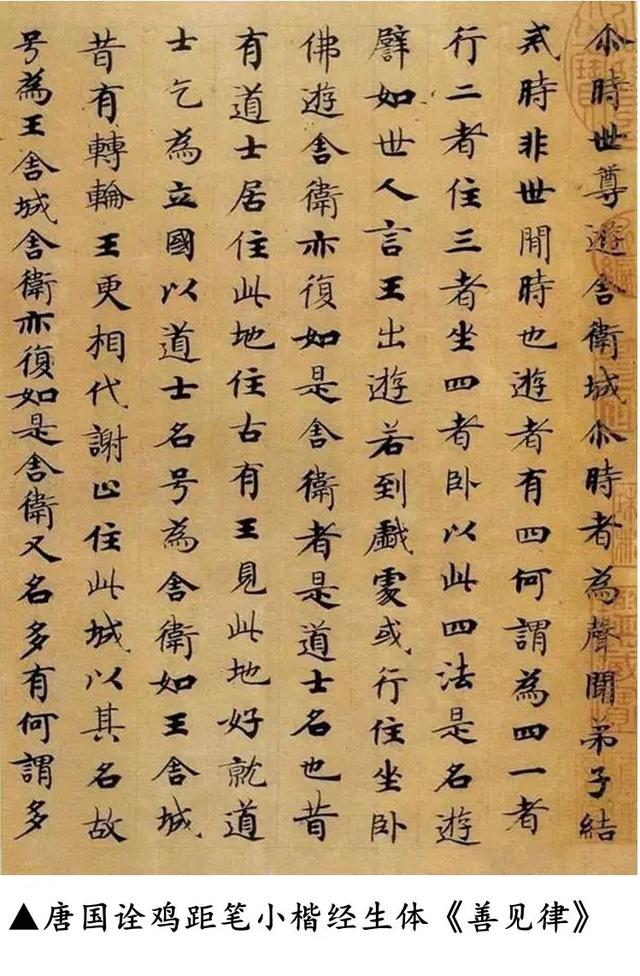 尒時世尊遊舍衛城尒時者為聲聞弟子結
戒時非世間時也遊者有四何謂為四一者
行二者住三者坐四者卧以此四法是名遊
譬如世人言王出遊若到戲處或行住坐卧
佛遊舍衛亦復如是舍衛者是道士名也昔
有道士居住此地住古有王見此地好就道
士乞為立國以道士名号為舍衛如王舍城
昔有轉輪王更相代謝止住此城以其名故
号為王舍城舍衛亦復如是舍衛又名多有何謂多
▲唐国诠鸡距笔小楷经生体《善见律》